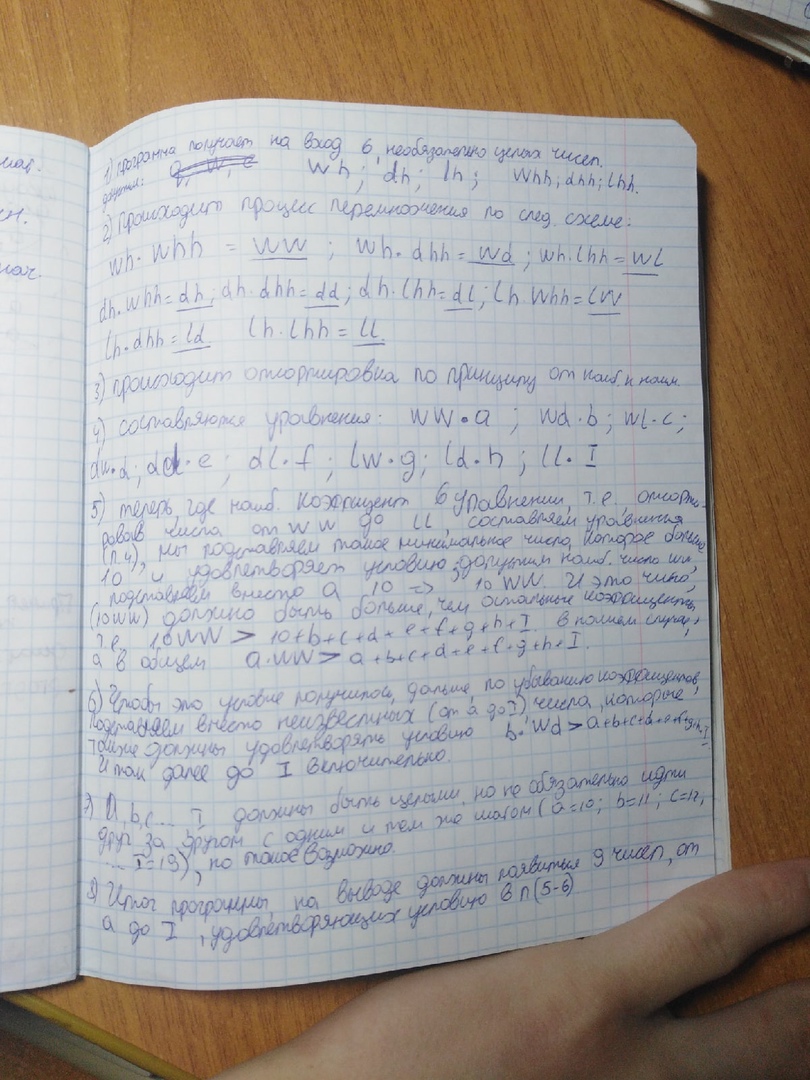 наг.
ен.
нач.
1) программа получает на вход 6, необязательно целых чисел.
допустим: Wh; dh; lh; Whh; dhh; lhh.
2) Происходит процесс перемножения по след. схеме:
Wh · Whh = WW ; Wh · dhh = Wd ; Wh·lhh = Wl
dh·Whh = dh; dh·dhh = dd; dh·lhh = dl; lh·Whh = lW
lh·dhh = ld lh·lhh = ll.
3) происходит отсортировка по принципу от наиб. к наим.
4) составляются уравнения: WW·a ; Wd·b ; Wl·c;
dw·d; dd·e ; dl·f ; lw·g; ld·h ; ll·I
5) теперь, где наиб. коэффициент в уравнении, т.е. отсорти-
ровав числа от WW до ll, составляем уравнения
(п.4), мы подставляем такое минимальное число, которое больше
10 и удовлетворяет условию: допустим наиб. число WW,
подставляем вместо a 10 => 10WW. И это число,
(10WW) должно быть больше, чем остальные коэффициенты,
т.е. 10WW > 10+b+c+d+e+f+g+h+I. В полном случае,
а в общем a·WW > a+b+c+d+e+f+g+h+I.
6) Чтобы это условие получилось, дальше по убыванию коэффициентов,
подставляем вместо неизвестных (от a до I) числа, которые
также должны удовлетворять условию b·Wd > a+b+c+d+e+f+g+h+I
И так далее до I включительно.
7) a, b, c ... I должны быть целыми, но не обязательно идти
друг за другом с одним и тем же шагом (a=10; b=11; c=12,
... I=19), но такое возможно.
8) Итог программы, на выводе должны появиться 9 чисел, от
a до I, удовлетворяющих условию в п(5-6)